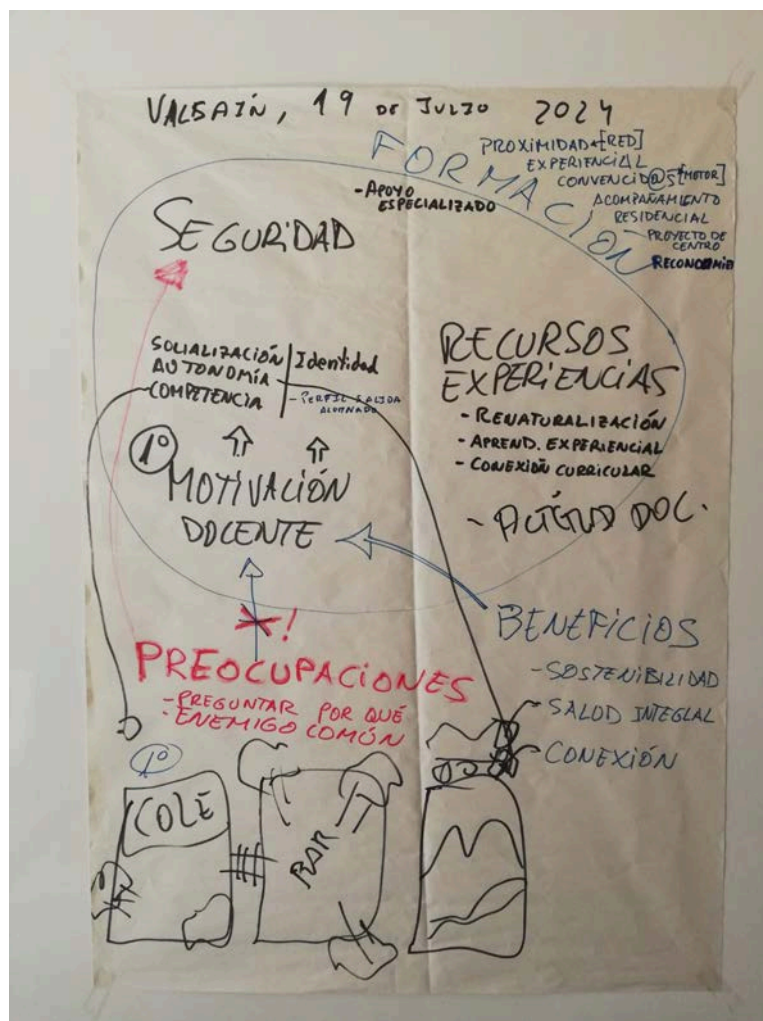 VALSAÍN, 19 DE JULIO 2024
FORMACIÓN
PROXIMIDAD+[RED]
EXPERIENCIAL
CONVENCID@S [MOTOR]
ACOMPAÑAMIENTO
RESIDENCIAL
PROYECTO DE
CENTRO
- APOYO
ESPECIALIZADO
SEGURIDAD
SOLIALIZACIÓN
AUTONOMÍA
COMPETENCIA
Identidad
- PERFIL SALIDA
ALUMNADO
RECURSOS
EXPERIENCIAS
- RENATURALIZACIÓN
- APREND. EXPERIENCIAL
- CONEXIÓN CURRICULAR
- ACTITUD DOC.
1º
MOTIVACIÓN
DOCENTE
BENEFICIOS
- SOSTENIBILIDAD
- SALUD INTEGRAL
- CONEXIÓN
!
PREOCUPACIONES
- PREGUNTAR POR QUÉ
- ENEMIGO COMÚN
1º
COLE
BAR